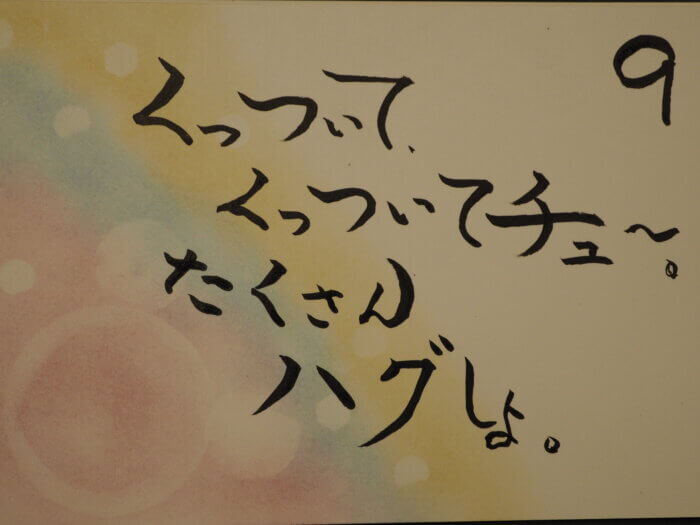 9
くっついて、
くっついてチュ〜。
たくさん
ハグしよ。